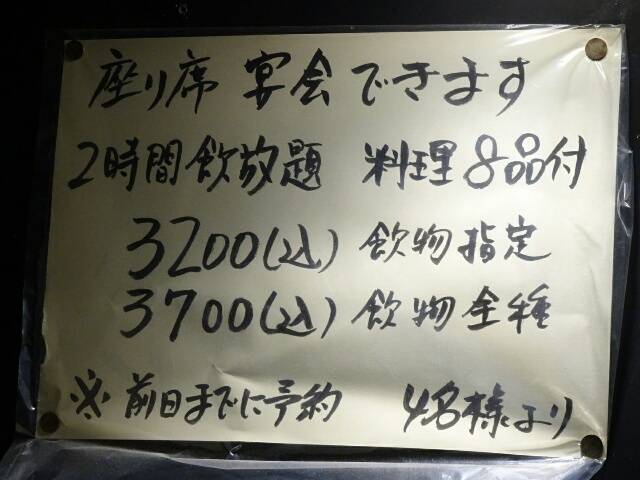 座り席 宴会できます
2時間飲放題 料理8品付
3200(込) 飲物指定
3700(込) 飲物全種
※ 前日までに予約 4名様より